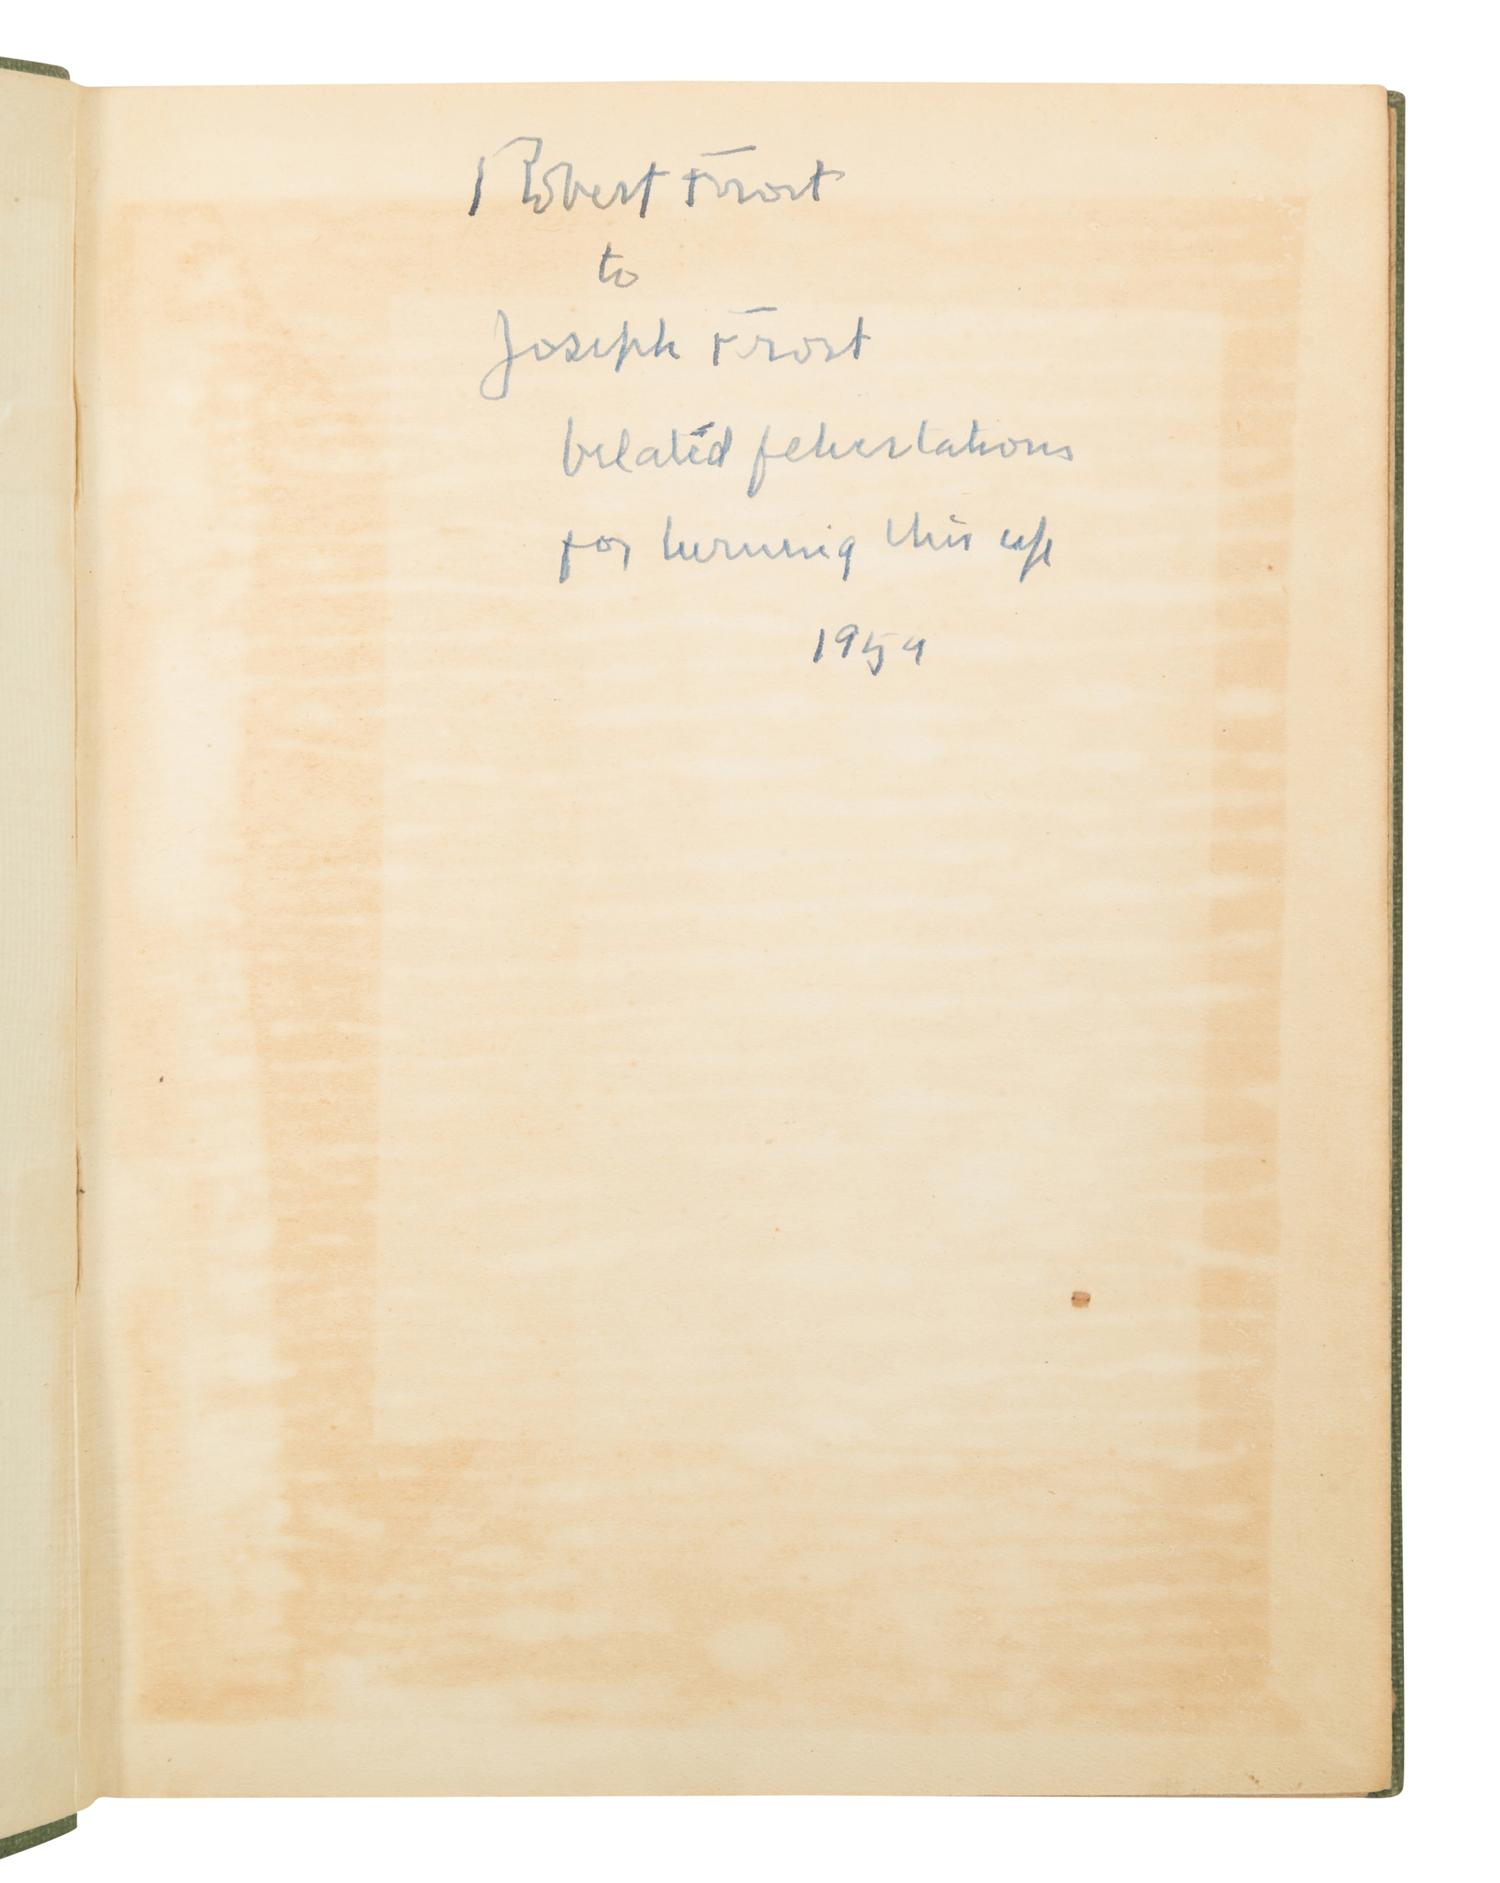 Robert Frost
to
Joseph Frost
belated felicitations
for turning this up
1959